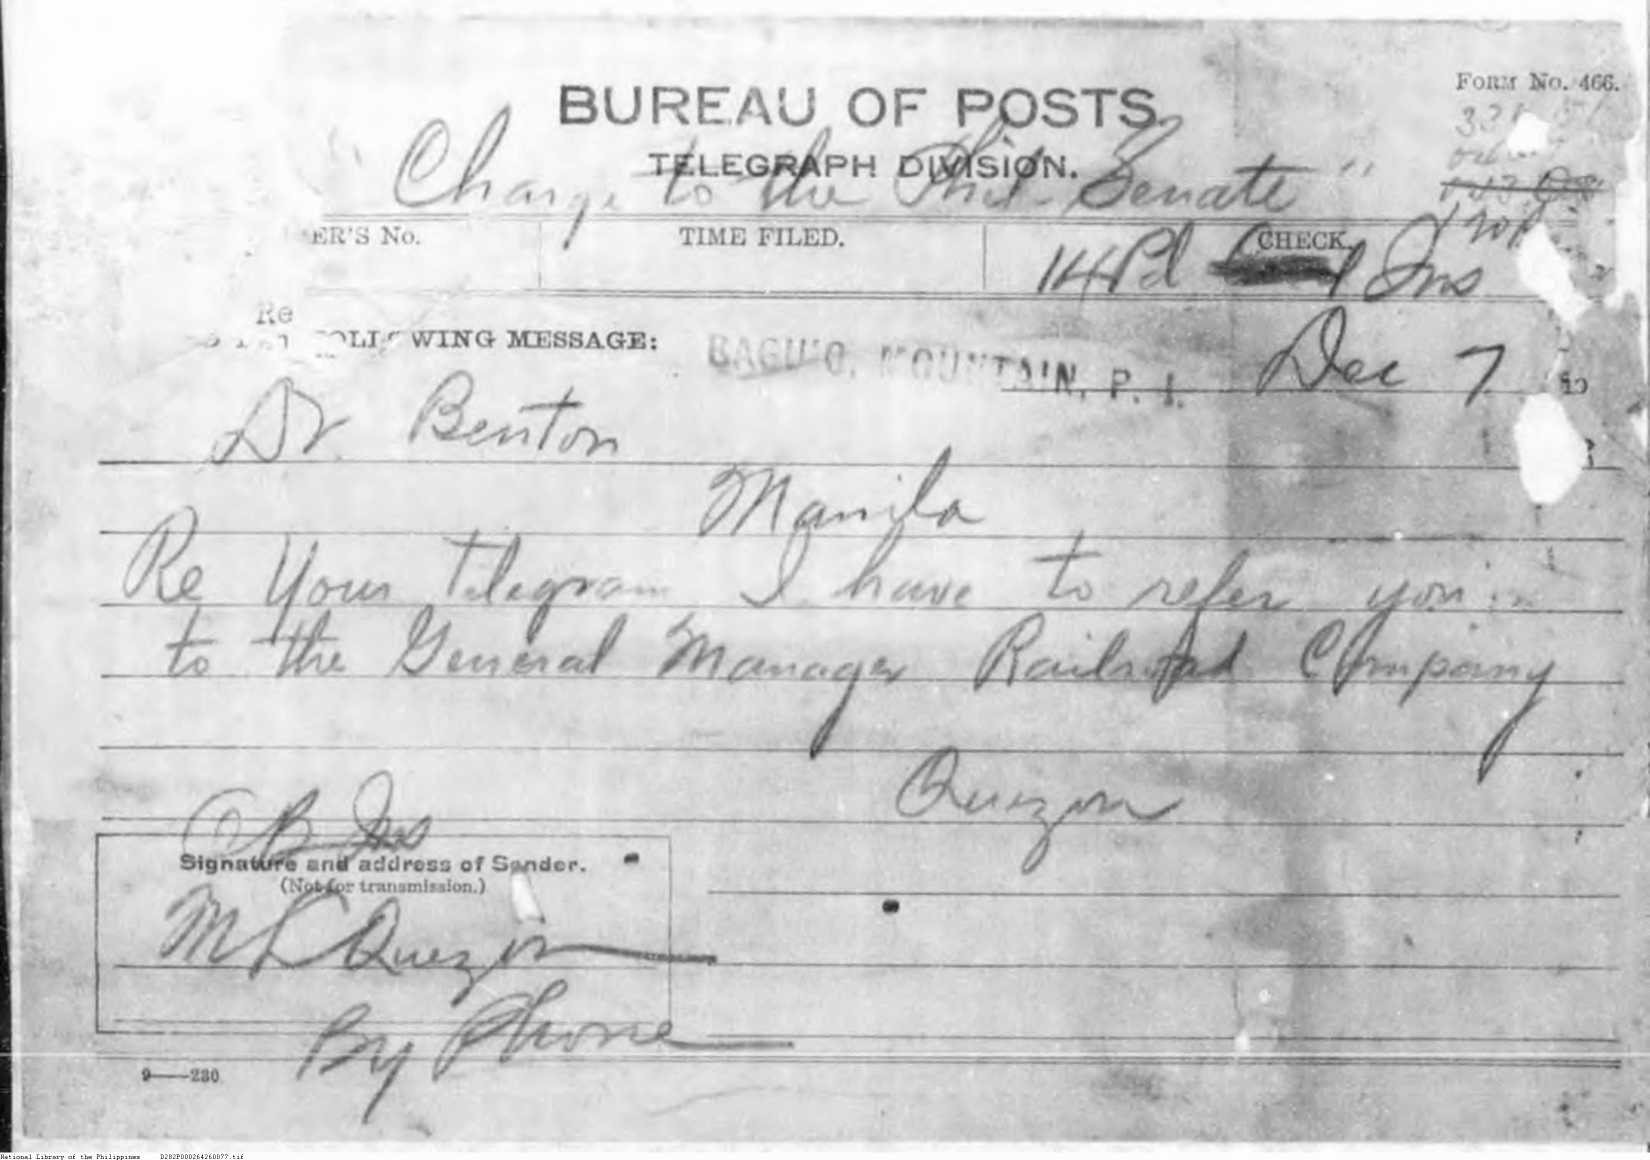 FORM No. 466.
BUREAU OF POSTS.
TELEGRAPH DIVISION.
"Charge to the Phil. Senate"
ER'S No. TIME FILED. CHECK.
14 Pd
FOLLOWING MESSAGE:
BAGUIO, MOUNTAIN, P. I. Dec 7
Dr. Benton
Manila
Re Your telegram I have to refer you
to the General Manager Railroad Company
Quezon
Signature and address of Sender.
(Not for transmission.)
M L Quezon
By Phone
9—230
National Library of the Philippines D282P000264260077.tif